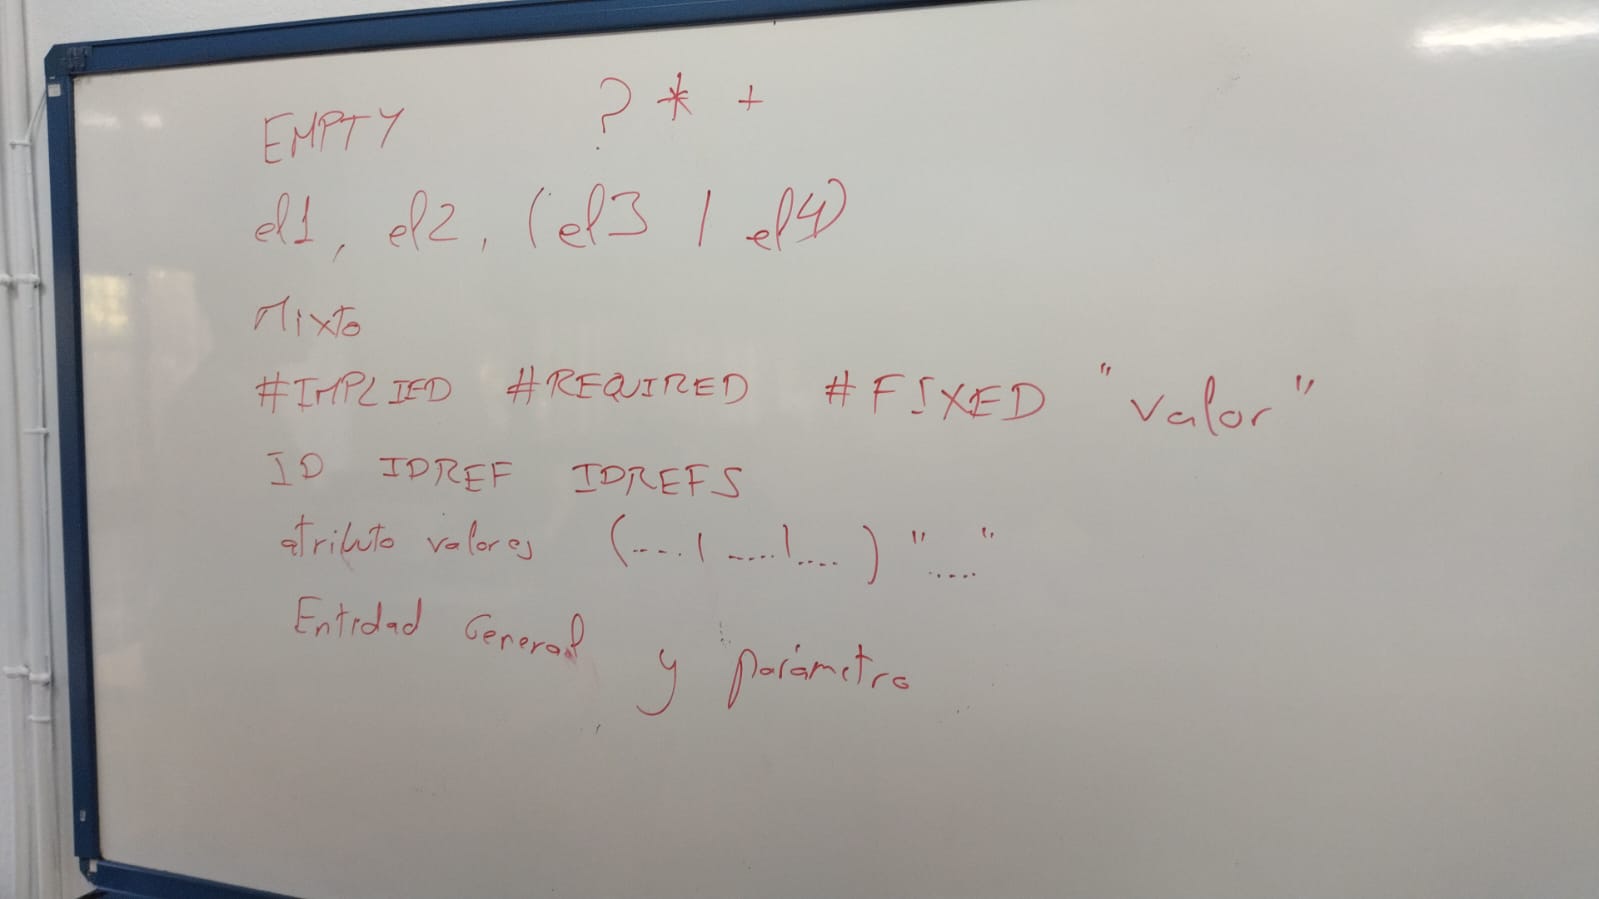 EMPTY ? * +
el1, el2, (el3 | el4)
Mixto
#IMPLIED #REQUIRED #FIXED "valor"
ID IDREF IDREFS
atributo valores (....|.....|....) "....."
Entidad General y parámetro